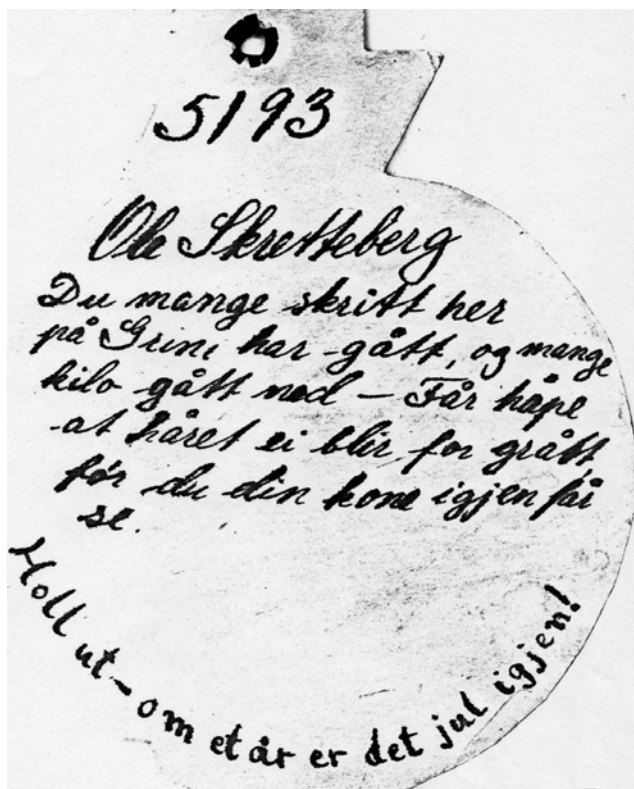 5193
Ole Skretteberg
Du mange skritt her
på Grini har gått, og mange
kilo gått ned – Får håpe
at håret ei blir for grått,
før du din kone igjen får
se.
Holl ut – om et år er det jul igjen!